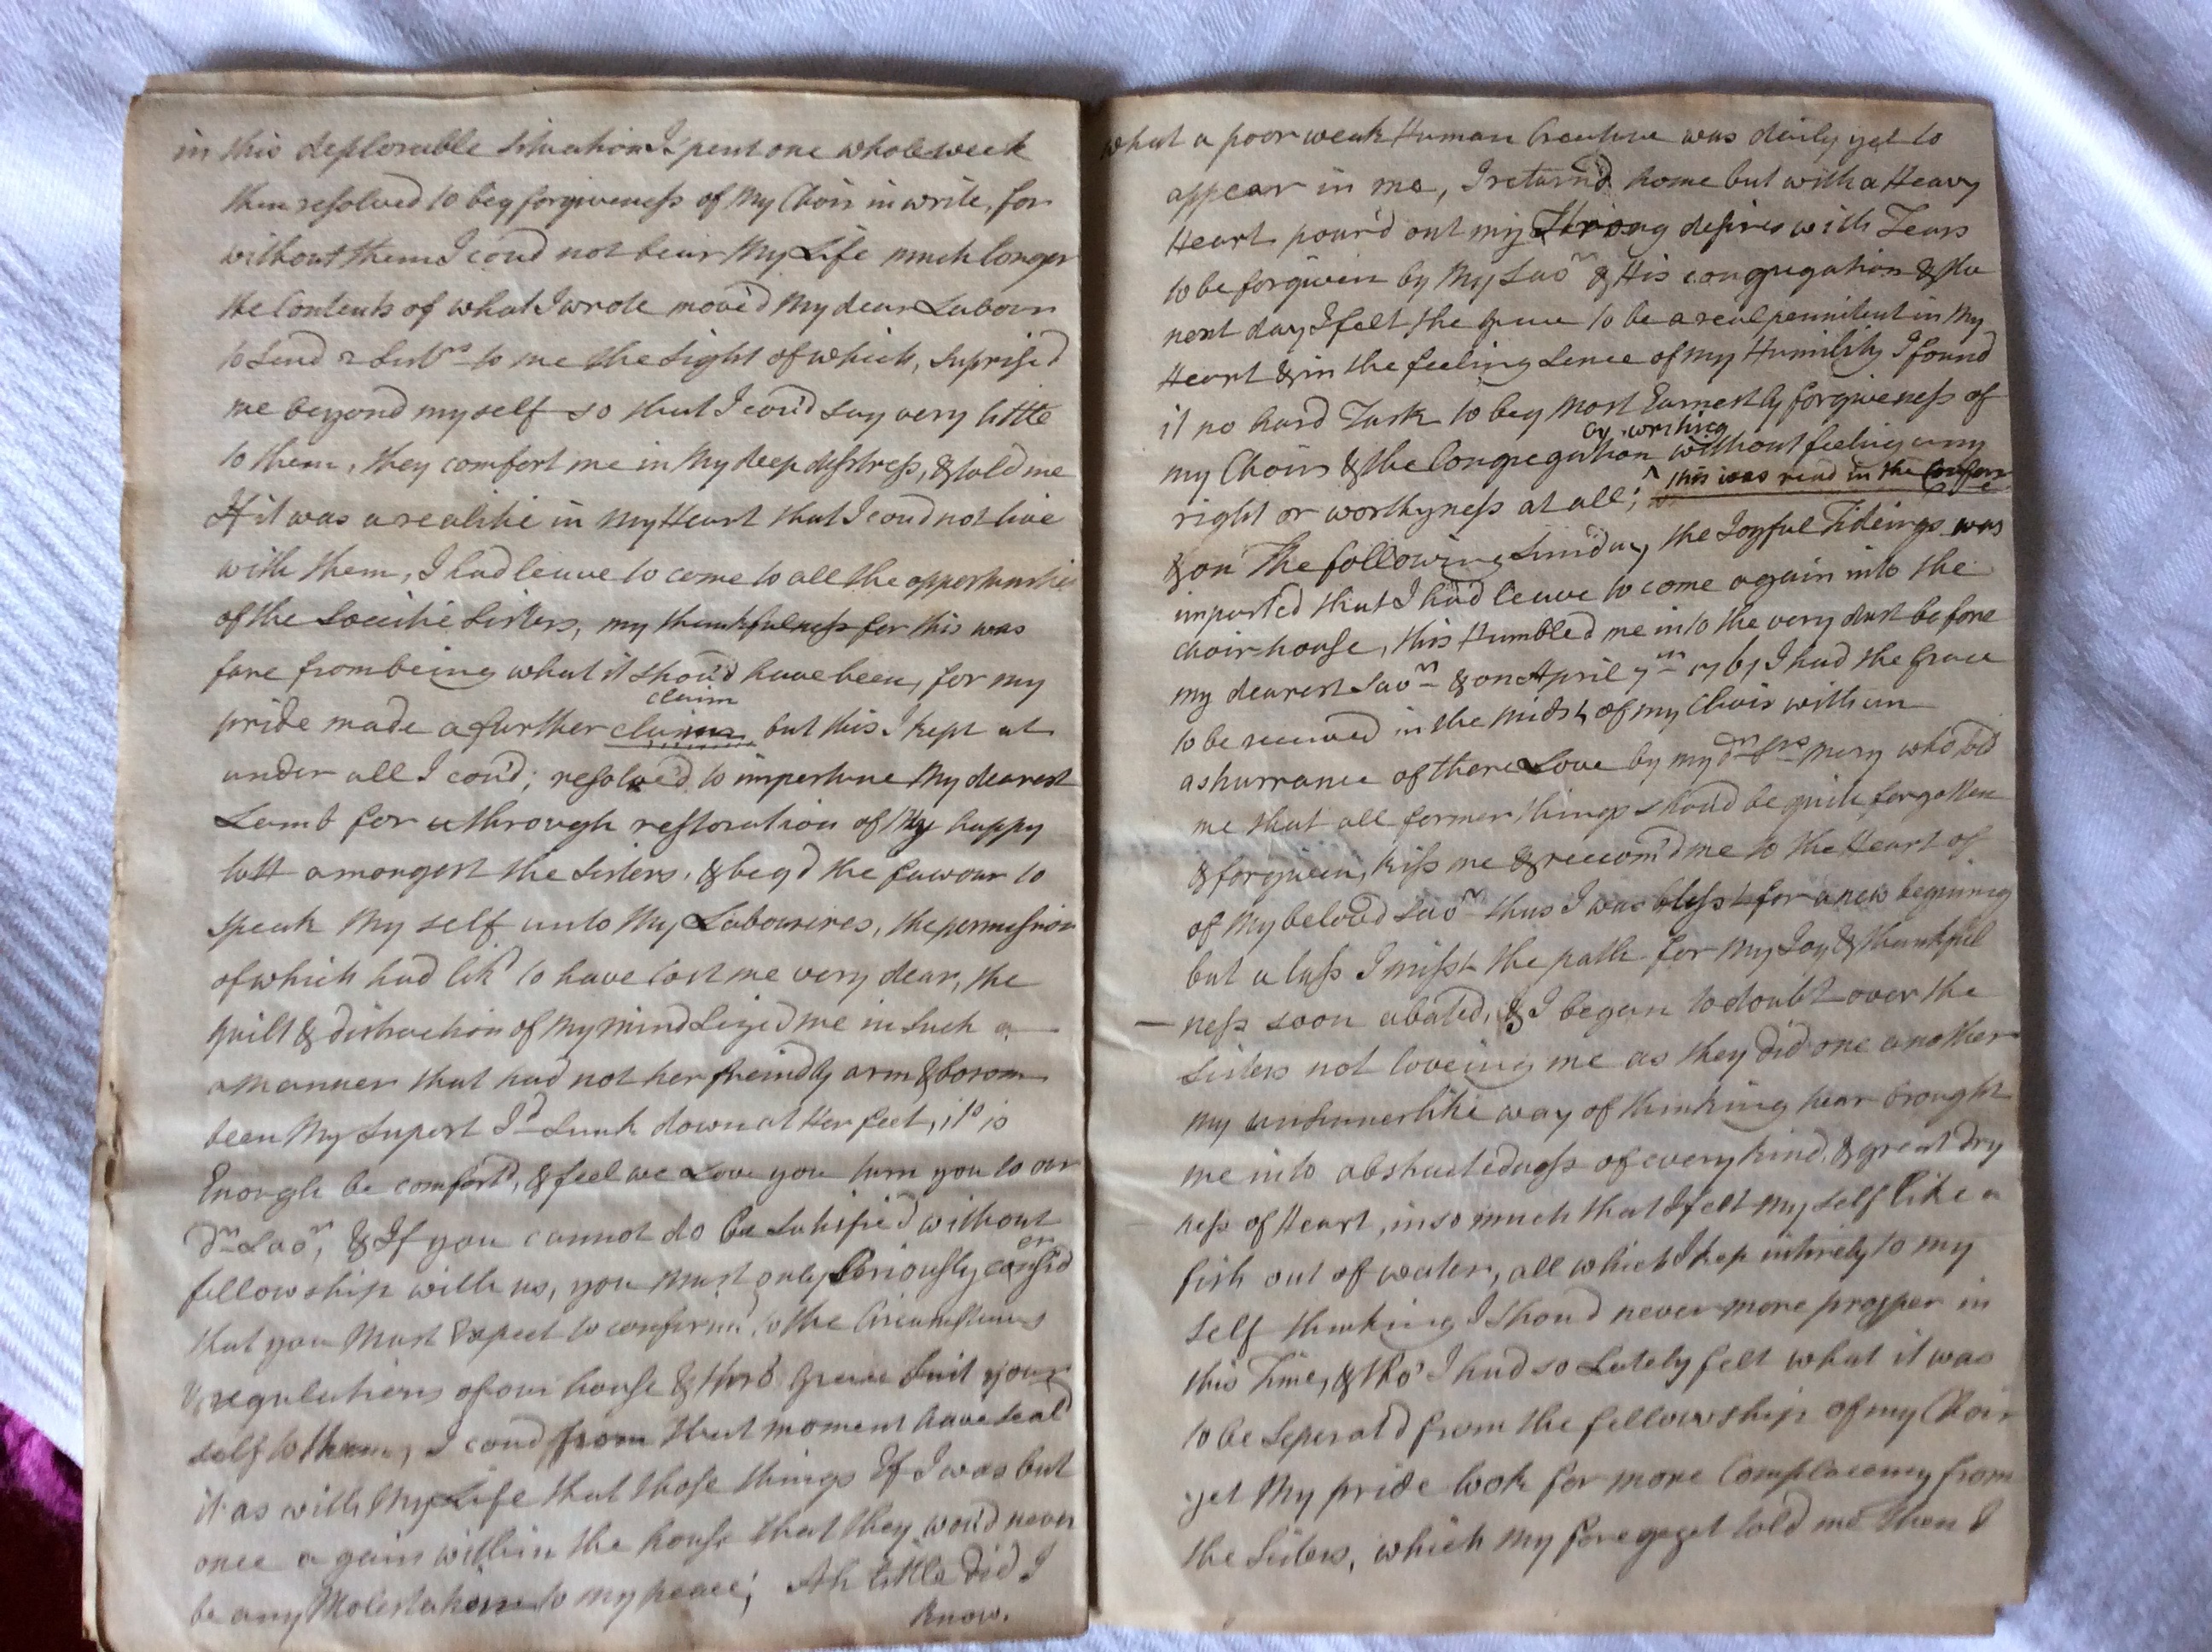 in this deplorable situation I spent one whole week
then resolved to beg forgiveness of My Choir in write, for
without them I coud not bear My Life much longer
the Contents of what I wrote move'd My dear Labour
to Send 2 Sist.rs to me the Sight of which, Suprise'd
me beyond my self so that I cou'd say very little
to them, they comfort me in My deep disstress, & told me
If it was a realitie in My Heart that I coud not live
with them, I had leave to come to all the opportunities
of the Socitie Sisters, my thankfulness for this was
fare from being what it shou'd have been, for my
claim
pride made a further claim but this I kept at
under all I cou'd; resolve'd to importune My dearest
Lamb for a through restoration of My happy
lott amongest the Sisters, & beg'd the favour to
speak My self unto My Laboureres, the permission
of which had lik'd to have cost me very dear, the
guilt & distraction of My Mind Seized me in Such a
a Manner that had not her freindly arm & bosom
been My Suport I'd Sunk down at Her feet, it is
Enough be comfort'd, & feel we Love you turn you to our
Dr Saor, & If you cannot do be Satisfie'd without
er
fellowship with us, you Must only Seriously consid
that you Must Expect to conform to the Circumstances
& regulations of our house & thro' Grace Suit your
self to them, I coud from that moment have seal'd
it as with My Life that those things If I was but
once again within the house that they wou'd never
be any Molestation to my peace; Ah little did I
know.
what a poor weak Human Creature was daily yet to
appear in me, I return'd home but with a Heavy
Heart pour'd out my Strong desires with Tears
to be forgiven by My Saor & His congregation & the
next day I felt the grace to be a real pennitent in My
Heart & in the feeling Sence of my Humility I found
it no hard Task to beg Most Earnestly forgiveness of
by writing
my Choir & the Congregation without feeling any
right or worthyness at all; this was read in the Confere
& on The following Sunday, the Joyful Tideings was
imparted that I had leave to come again into the
choir house, this Humbled me into the very dust before
my dearest Saor & on April 7th 1761 I had the Grace
to be received in the Midst of my Choir with an
ashurrance of there Love by my Dr Srs Mary who told
me that all former things shou'd be quite forgotten
& forgiven, kiss me & recom'd me to the Heart of
of My beloved Saor thus I was blesst for a new begining
but a lass I misst the path for My Joy & thankful
ness soon abated, & I began to doubt over the
Sisters not loveing me as they did one another
my unsinnerlike way of thinking hear brought
me into abstractedness of every kind, & great dry
ness of Heart, in so much that I felt My self like a
fish out of water, all which I kep intirely to my
self thinking I shou'd never more prosper in
this Time, & tho' I had so Lately felt what it was
to be Seperat'd from the fellowship of my Choir
yet My pride look for more Complacency from
the Sisters, which My told me then I